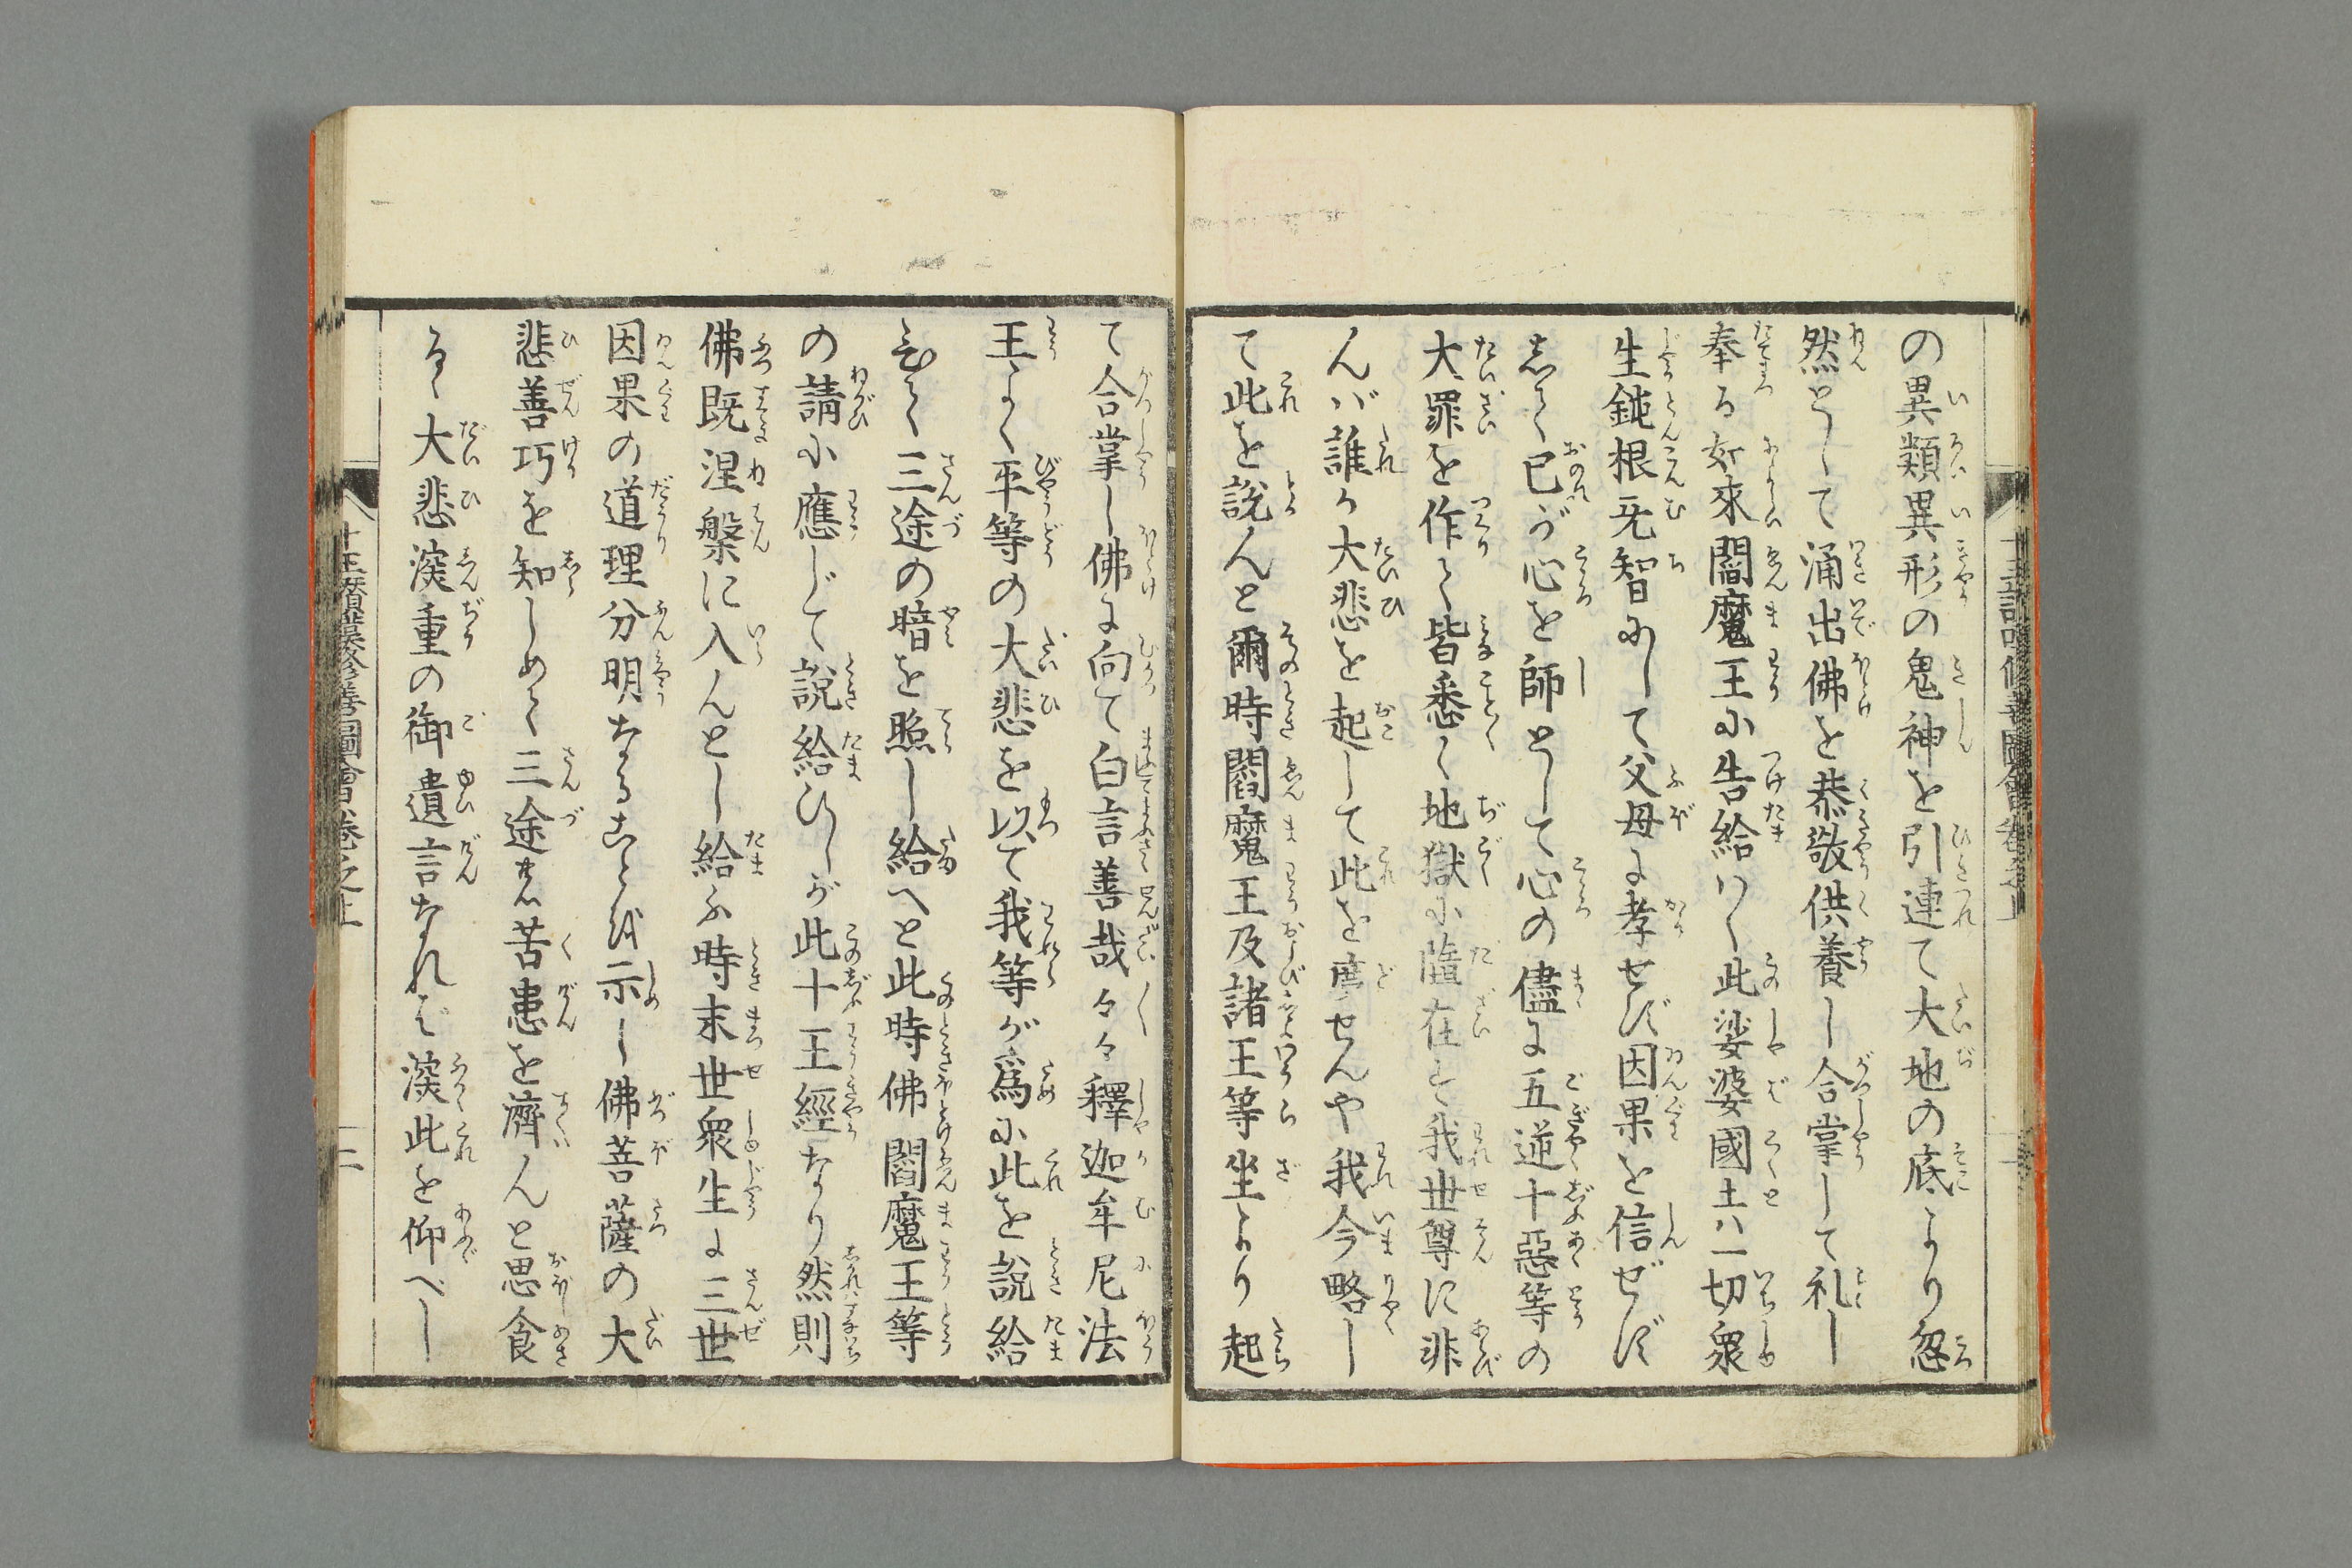 の異類異形の鬼神を引連て大地の底より忽
然として涌出佛を恭敬供養し合掌して礼し
奉る如來閻魔王に告給はく此娑婆國土ハ一切衆
生鈍根无智にして父母に孝せず因果を信ぜず
して己が心を師として心の儘に五逆十惡等の
大罪を作て皆悉く地獄に墮在す我世尊に非
んバ誰か大悲を起して此を度せんや我今略し
て此を説んと爾時閻魔王及諸王等坐より起
て合掌し佛に向て白言善哉々々釋迦牟尼法
王よく平等の大悲を以て我等が爲に此を説給
ひて三途の暗を照し給へと此時佛閻魔王等
の請に應じて説給ひしが此十王經なり然則
佛既涅槃に入んとし給ふ時末世衆生に三世
因果の道理分明なることを示し佛菩薩の大
悲善巧を知しめて三途の苦患を濟んと思食
るゝ大悲深重の御遺言なれば深此を仰べし
十王讃歎修善圖會卷之上
二